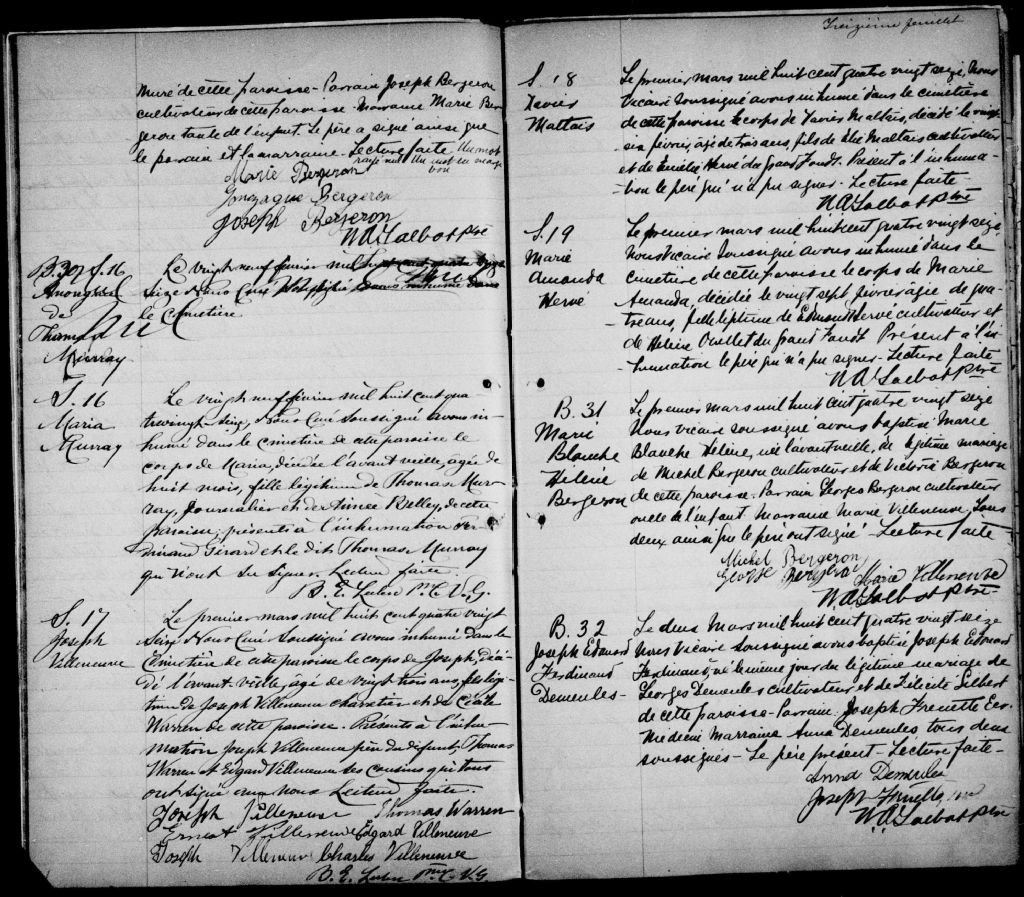 muré de cette paroisse - Parrain Joseph Bergeron
cultivateur de cette paroisse - Marraine Marie Ber
geron tante de l'enfant. Le père a signé ainsi que
le parrain et la marraine - Lecture faite. Un mot
rayé nul Un mot en marge
bon
Marie Bergeron
Gonzague Bergeron
Joseph Bergeron
N.A. Talbot Ptre
B. 30 / S. 16
Anonyme
de
Thomas
Murray
nul
Le vingt neuf février mil huit cent quatre vingt
seize Nous Curé soussigné avons inhumé dans
le cimetière
nul
S. 16
Maria
Murray
Le vingt neuf février mil huit cent qua
trevingt seize, Nous Curé soussigné avons in-
humé dans le cimetière de cette paroisse le
corps de Maria, décédée l'avant veille, agée de
huit mois, fille légitime de Thomas Mur-
ray, Journalier et de Aimée Kelley, de cette
paroisse; présents à l'inhumation Fer-
dinand Girard et le dit Thomas Murray
qui n'ont su signer. Lecture faite.
B. E. Leclerc Ptre C. V.G.
S. 17
Joseph
Villeneuve
Le premier mars mil huit cent quatre vingt
seize Nous Curé soussigné avons inhumé dans le
Cimetière de cette paroisse le corps de Joseph, décé-
dé l'avant-veille, agé de vingt trois ans, fils légi-
time de Joseph Villeneuve charretier et de Cécile
Warren de cette paroisse. Présents à l'inhu-
mation Joseph Villeneuve père du défunt, Thomas
Warren et Edgard Villeneuve ses cousins qui tous
ont signé avec Nous Lecture faite.
Joseph Villeneuve Thomas Warren
Ernest Villeneuve Edgard Villeneuve
Joseph Villeneuve Charles Villeneuve
B. E. Leclerc Ptre C. V.G.
Treizième feuillet
S. 18
Xavier
Maltais
Le premier mars mil huit cent quatre vingt seize, Nous
Vicaire soussigné avons inhumé dans le cimetière
de cette paroisse le corps de Xavier Maltais, décédé le vingt
six février, agé de trois ans, fils de Elie Maltais cultivateur
et de Emélie Hervé du Grand Fond. Présent à l'inhuma-
tion le père qui n'a pu signer - Lecture faite -
N.A. Talbot Ptre
S. 19
Marie
Amanda
Hervé
Le premier mars mil huit cent quatre vingt seize
Nous Vicaire soussigné avons inhumé dans le
cimetière de cette paroisse le corps de Marie
Amanda, décédée le vingt sept février agée de qua-
tre ans, fille légitime de Edmond Hervé cultivateur et
de Hélène Ouellet du Grand Fond. Présent à l'in-
humation le père qui n'a pu signer - Lecture faite
N.A. Talbot Ptre
B. 31
Marie
Blanche
Hélène
Bergeron
Le premier mars mil huit cent quatre vingt seize
Nous vicaire soussigné avons baptisé Marie
Blanche Hélène, née l'avant veille, du légitime mariage
de Michel Bergeron cultivateur et de Victoria Bergeron
de cette paroisse - Parrain Georges Bergeron cultivateur
oncle de l'enfant Marraine Marie Villeneuve. Tous
deux ainsi que le père ont signé - Lecture faite
Michel Bergeron
George Bergeron Marie Villeneuve
N.A. Talbot Ptre
B. 32
Joseph Edouard
Ferdinand
Demeules -
Le deux Mars mil huit cent quatre vingt seize
Nous Vicaire soussigné avons baptisé Joseph Edouard
Ferdinand, né le même jour du légitime mariage de
Georges Demeules cultivateur et de Félicité Gilbert
de cette paroisse - Parrain: Joseph Frenette Ecr.
Médecin Marraine Anna Demeules, tous deux
soussignés - Le père présent - Lecture faite -
Anna Demeules
Joseph Frenette
N.A. Talbot Ptre